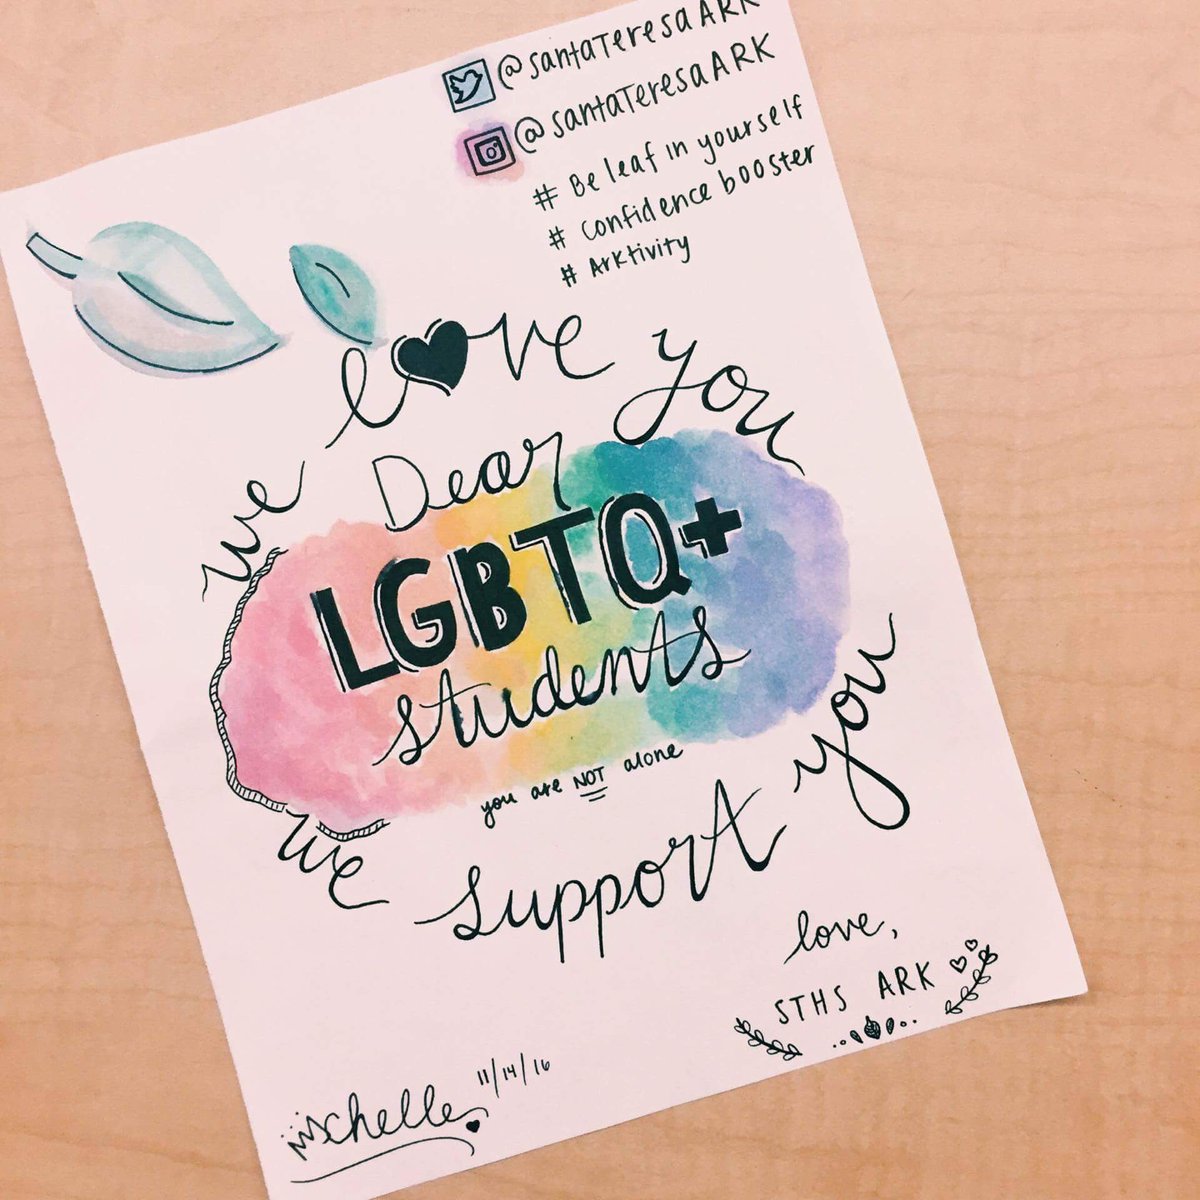 @santaTeresaARK
@santaTeresaARK
# Be leaf in yourself
# confidence booster
# Arktivity
we love you
Dear
LGBTQ+
students
you are NOT alone
we support you
love,
STHS ARK
michelle 11/14/16